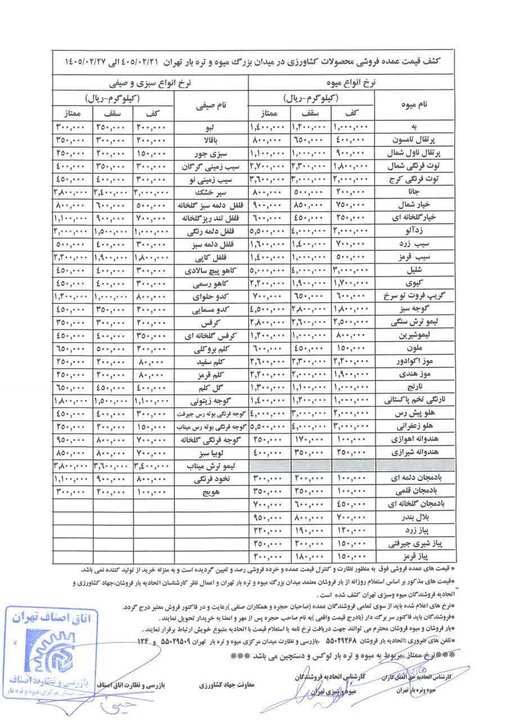 کشف قیمت عمده فروشی محصولات کشاورزی در میدان بزرگ میوه و تره بار تهران ۱۴۰۵/۰۲/۲۱ الی ۱۴۰۵/۰۲/۲۷
نرخ انواع میوه نرخ انواع سبزی و صیفی
نام میوه (کیلوگرم-ریال) نام صیفی (کیلوگرم-ریال)
کف سقف ممتاز کف سقف ممتاز
به ۱,۰۰۰,۰۰۰ ۱,۲۰۰,۰۰۰ ۱,۴۰۰,۰۰۰ لبو ۲۰۰,۰۰۰ ۲۵۰,۰۰۰ ۳۰۰,۰۰۰
پرتقال تامسون ۴۰۰,۰۰۰ ۶۵۰,۰۰۰ ۸۰۰,۰۰۰ باقالا ۲۰۰,۰۰۰ ۳۰۰,۰۰۰ ۳۵۰,۰۰۰
پرتقال ناول شمال ۹۰۰,۰۰۰ ۱,۰۰۰,۰۰۰ ۱,۱۰۰,۰۰۰ سبزی جور ۱۵۰,۰۰۰ ۲۰۰,۰۰۰ ۲۵۰,۰۰۰
توت فرنگی شمال ۱,۸۰۰,۰۰۰ ۲,۳۰۰,۰۰۰ ۲,۷۰۰,۰۰۰ سیب زمینی گرگان ۳۰۰,۰۰۰ ۳۵۰,۰۰۰ ۴۰۰,۰۰۰
توت فرنگی کرج ۲,۰۰۰,۰۰۰ ۳,۰۰۰,۰۰۰ ۳,۶۰۰,۰۰۰ سیب زمینی نو ۳۰۰,۰۰۰ ۴۰۰,۰۰۰ ۴۵۰,۰۰۰
جانا ۲۰۰,۰۰۰ ۵۰۰,۰۰۰ ۸۰۰,۰۰۰ سیر خشک ۲,۰۰۰,۰۰۰ ۲,۴۰۰,۰۰۰ ۲,۸۰۰,۰۰۰
خیار شمال ۷۵۰,۰۰۰ ۸۵۰,۰۰۰ ۹۰۰,۰۰۰ فلفل دلمه سبز گلخانه ۵۰۰,۰۰۰ ۶۰۰,۰۰۰ ۸۰۰,۰۰۰
خیارگلخانه ای ۲۵۰,۰۰۰ ۴۵۰,۰۰۰ ۶۰۰,۰۰۰ فلفل تند ریزگلخانه ۷۰۰,۰۰۰ ۹۰۰,۰۰۰ ۱,۱۰۰,۰۰۰
زدآلو ۲,۰۰۰,۰۰۰ ۴,۰۰۰,۰۰۰ ۵,۵۰۰,۰۰۰ فلفل دلمه رنگی ۱,۰۰۰,۰۰۰ ۱,۵۰۰,۰۰۰ ۲,۰۰۰,۰۰۰
سیب زرد ۷۰۰,۰۰۰ ۱,۴۰۰,۰۰۰ ۱,۶۰۰,۰۰۰ فلفل دلمه سبز ۳۰۰,۰۰۰ ۴۰۰,۰۰۰ ۵۰۰,۰۰۰
سیب قرمز ۵۰۰,۰۰۰ ۱,۰۰۰,۰۰۰ ۱,۴۰۰,۰۰۰ فلفل کاپی ۱,۸۰۰,۰۰۰ ۱,۹۰۰,۰۰۰ ۲,۲۰۰,۰۰۰
شلیل ۳,۰۰۰,۰۰۰ ۴,۰۰۰,۰۰۰ ۵,۰۰۰,۰۰۰ کاهو پیچ سالادی ۳۰۰,۰۰۰ ۴۰۰,۰۰۰ ۴۵۰,۰۰۰
کیوی ۱,۷۰۰,۰۰۰ ۱,۹۰۰,۰۰۰ ۲,۲۰۰,۰۰۰ کاهو رسمی ۳۰۰,۰۰۰ ۴۰۰,۰۰۰ ۴۵۰,۰۰۰
گریپ فروت تو سرخ ۶۰۰,۰۰۰ ۶۵۰,۰۰۰ ۷۰۰,۰۰۰ کدو حلوای ۸۰۰,۰۰۰ ۱,۰۰۰,۰۰۰ ۱,۲۰۰,۰۰۰
گوجه سبز ۱,۸۰۰,۰۰۰ ۲,۸۰۰,۰۰۰ ۴,۵۰۰,۰۰۰ کدو مسمایی ۲۰۰,۰۰۰ ۳۵۰,۰۰۰ ۴۵۰,۰۰۰
لیمو ترش سنگی ۲,۵۰۰,۰۰۰ ۲,۶۰۰,۰۰۰ ۲,۸۰۰,۰۰۰ کرفس ۲۰۰,۰۰۰ ۳۰۰,۰۰۰ ۳۵۰,۰۰۰
لیموشیرین ۸۰۰,۰۰۰ ۱,۰۰۰,۰۰۰ ۱,۲۰۰,۰۰۰ کرفس گلخانه ای ۳۵۰,۰۰۰ ۴۰۰,۰۰۰ ۴۵۰,۰۰۰
ملون ۱۵۰,۰۰۰ ۴۵۰,۰۰۰ ۶۰۰,۰۰۰ کلم بروکلی ۲۰۰,۰۰۰ ۴۰۰,۰۰۰ ۶۵۰,۰۰۰
موز اکوادور ۲,۲۰۰,۰۰۰ ۲,۳۰۰,۰۰۰ ۲,۶۰۰,۰۰۰ کلم سفید ۸۰,۰۰۰ ۲۰۰,۰۰۰ ۲۵۰,۰۰۰
موز هندی ۱,۹۰۰,۰۰۰ ۲,۰۰۰,۰۰۰ ۲,۲۰۰,۰۰۰ کلم قرمز ۸۰,۰۰۰ ۲۰۰,۰۰۰ ۲۵۰,۰۰۰
نارنج ۱,۰۰۰,۰۰۰ ۱,۱۰۰,۰۰۰ ۱,۳۰۰,۰۰۰ گل کلم ۴۰۰,۰۰۰ ۴۵۰,۰۰۰ ۶۵۰,۰۰۰
نارنگی تخم پاکستانی ۱,۰۰۰,۰۰۰ ۱,۲۰۰,۰۰۰ ۱,۴۰۰,۰۰۰ گوجه زیتونی ۱,۱۰۰,۰۰۰ ۱,۵۰۰,۰۰۰ ۱,۸۰۰,۰۰۰
هلو پیش رس ۲,۰۰۰,۰۰۰ ۳,۰۰۰,۰۰۰ ۴,۰۰۰,۰۰۰ گوجه فرنگی بوته رس جیرفت ۳۰۰,۰۰۰ ۴۰۰,۰۰۰ ۴۵۰,۰۰۰
هلو زعفرانی ۲,۰۰۰,۰۰۰ ۴,۰۰۰,۰۰۰ ۵,۵۰۰,۰۰۰ گوجه فرنگی بوته رس میناب ۱۵۰,۰۰۰ ۲۰۰,۰۰۰ ۲۵۰,۰۰۰
هندوانه اهوازی ۱۰۰,۰۰۰ ۱۷۰,۰۰۰ ۲۵۰,۰۰۰ گوجه فرنگی گلخانه ۷۰۰,۰۰۰ ۸۰۰,۰۰۰ ۹۵۰,۰۰۰
هندوانه شیرازی ۲۵۰,۰۰۰ ۳۵۰,۰۰۰ ۴۰۰,۰۰۰ لوبیا سبز ۵۰۰,۰۰۰ ۷۰۰,۰۰۰ ۸۵۰,۰۰۰
لیمو ترش میناب ۳,۴۰۰,۰۰۰ ۳,۶۰۰,۰۰۰ ۳,۸۰۰,۰۰۰
بادمجان دلمه ای ۱۰۰,۰۰۰ ۲۰۰,۰۰۰ ۳۰۰,۰۰۰ نخود فرنگی ۸۰۰,۰۰۰ ۹۰۰,۰۰۰ ۱,۱۰۰,۰۰۰
بادمجان قلمی ۱۰۰,۰۰۰ ۲۵۰,۰۰۰ ۳۵۰,۰۰۰ هویج ۱۰۰,۰۰۰ ۲۰۰,۰۰۰ ۳۰۰,۰۰۰
بادمجان گلخانه ای ۴۵۰,۰۰۰ ۶۰۰,۰۰۰ ۷۰۰,۰۰۰
بلال بندر ۷۰۰,۰۰۰ ۸۰۰,۰۰۰ ۹۵۰,۰۰۰
پیاز زرد ۱۲۰,۰۰۰ ۱۹۰,۰۰۰ ۲۲۰,۰۰۰
پیاز شیری جیرفتی ۲۵۰,۰۰۰ ۲۰۰,۰۰۰ ۲۵۰,۰۰۰
پیاز قرمز ۱۵۰,۰۰۰ ۱۸۰,۰۰۰ ۲۰۰,۰۰۰
* قیمت های عمده فروشی فوق به منظور نظارت و کنترل قیمت عمده و خرده فروشی رصد و تعیین گردیده است و به منزله خرید از تولید کننده نمی باشد.
* قیمت های مذکور بر اساس استعلام روزانه از بار فروشان معتمد میدان بزرگ میوه و تره بار تهران و اعمال نظر کارشناسان اتحادیه بارفروشان،جهاد کشاورزی و
اتحادیه فروشندگان میوه وسبزی تهران کشف شده است .
* نرخ های اعلام شده باید از سوی تمامی فروشندگان عمده (صاحبان حجره و همکاران صنفی )رعایت و در فاکتور فروش معتبر درج گردد.
* فروشندگان باید فاکتور سر برگ دار (بادرج قیمت واقعی )به نام صاحب حجره پس از مهر و امضا به خریدار تحویل نمایند.
* اتحادیه ها و بارفروشان محترم می توانند جهت دریافت نرخ نامه یا استعلام قیمت با اتحادیه متبوع خویش ارتباط برقرار نمایند .
* تلفن های ضروری :اتحادیه بار فروشان ۵۵۰۲۹۲۶۸ بازرسی و نظارت میدان مرکزی میوه و تره بار تهران ۵۵۰۲۹۵۰۹ و ۱۲۴
***نرخ ممتاز،مربوط به میوه و تره بار لوکس و دستچین می باشد ***
کارشناس اتحادیه حق العملکاران
میوه وتره بار تهران
کارشناس اتحادیه فروشندگان
میوه وسبزی تهران
معاونت جهاد کشاورزی
بازرسی و نظارت اتاق اصناف
اتاق اصناف تهران
بازرسی و نظارت اصناف
میدان مرکزی میوه و تره بار